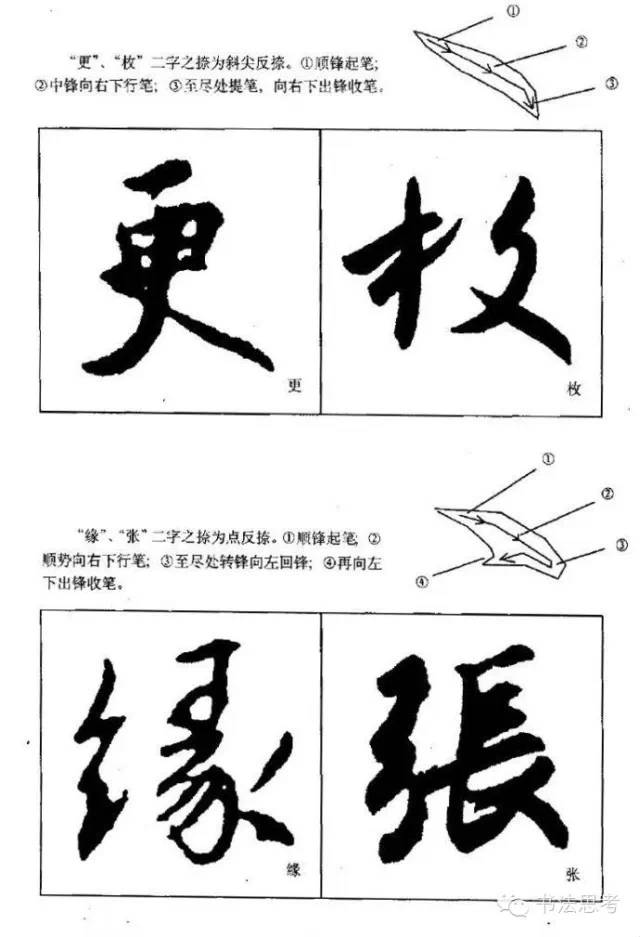 “更”、“枚”二字之捺为斜尖反捺。①顺锋起笔;
②中锋向右下行笔;③至尽处提笔，向右下出锋收笔。
①
②
③
更
枚
更
枚
“缘”、“张”二字之捺为点反捺。①顺锋起笔;②
顺势向右下行笔;③至尽处转锋向左回锋;④再向左
下出锋收笔。
①
②
③
④
缘
張
缘
张
书法思考